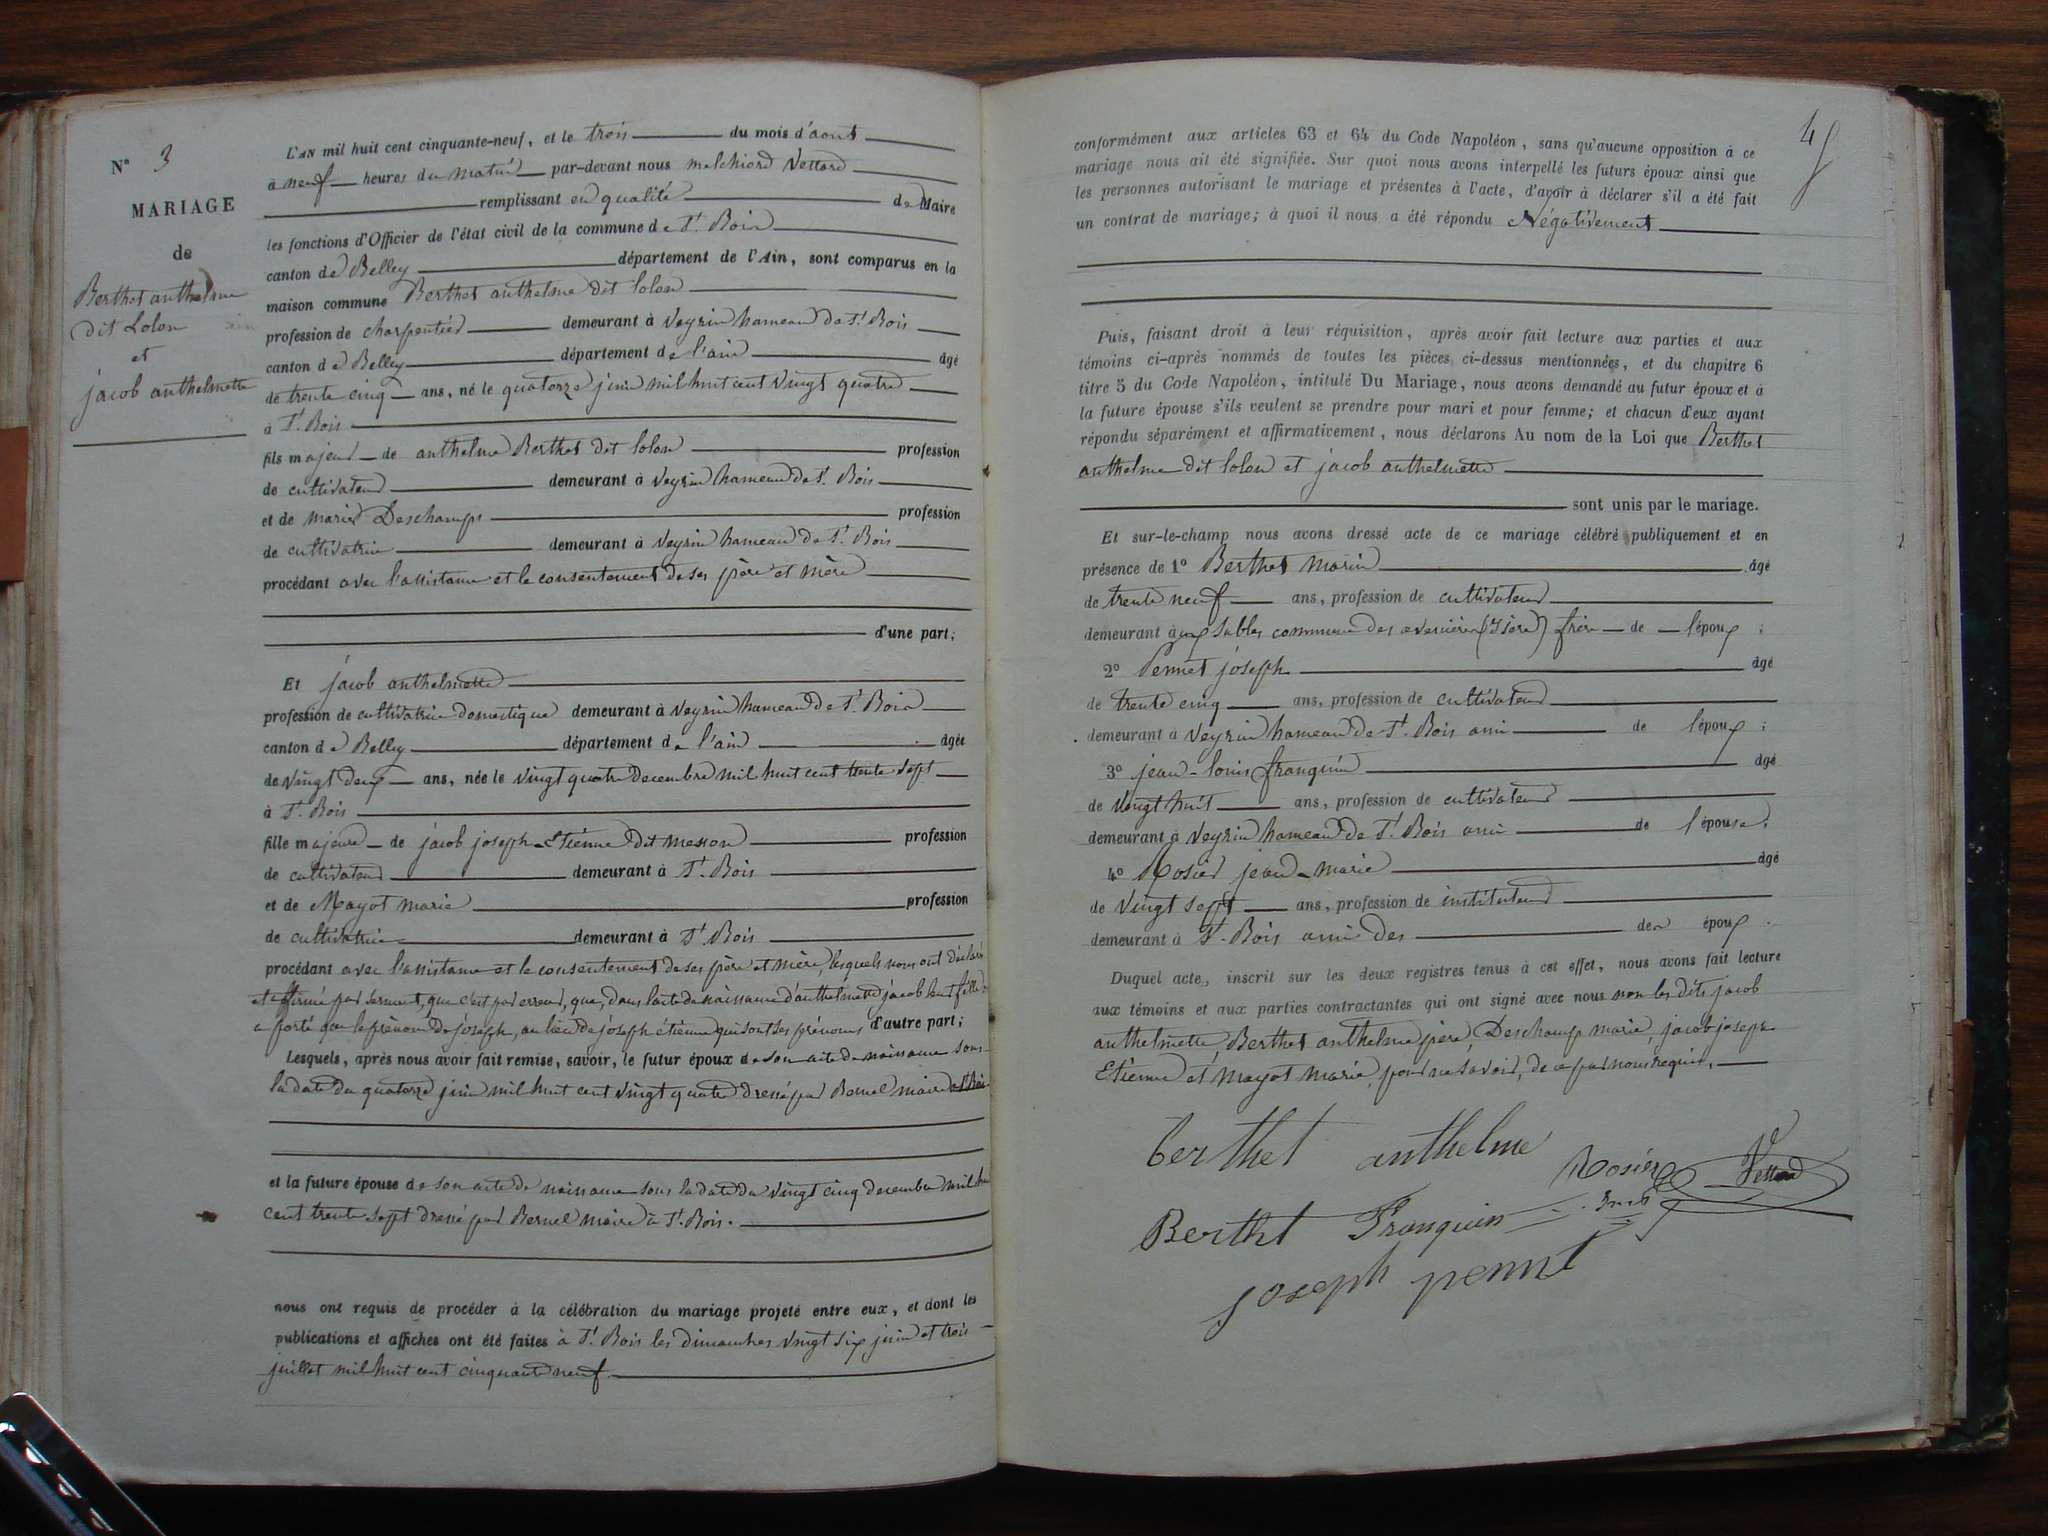 N° 3
MARIAGE
de
Berthet anthelme
dit Lolon
et
jacob anthelmette
L'AN mil huit cent cinquante-neuf, et le trois du mois d'aout
à neuf heures du matin par-devant nous melchiord Vettard
remplissant en qualité de Maire
les fonctions d'Officier de l'état civil de la commune de St. Bois
canton de Belley département de l'Ain, sont comparus en la
maison commune Berthet anthelme dit lolon
profession de charpentier demeurant à Veyrin hameau de St. Bois
canton de Belley département de l'ain âgé
de trente cinq ans, né le quatorze juin mil huit cent vingt quatre
à St. Bois
fils majeur de anthelme Berthet dit lolon profession
de cultivateur demeurant à Veyrin hameau de St. Bois
et de marie Deschamps profession
de cultivatrice demeurant à Veyrin hameau de St. Bois
procédant avec l'assistance et le consentement de ses père et mère
d'une part;
Et jacob anthelmette
profession de cultivatrice domestique demeurant à Veyrin hameau de St. Bois
canton de Belley département de l'ain âgée
de vingt deux ans, née le vingt quatre decembre mil huit cent trente sept
à St. Bois
fille majeure de jacob joseph-Etienne dit masson profession
de cultivateur demeurant à St. Bois
et de Mayot marie profession
de cultivatrice demeurant à St. Bois
procédant avec l'assistance et le consentement de ses père et mère, lesquels nous ont déclaré
et affirmé par serment, que c'est par erreur, que, dans l'acte de naissance d'anthelmette jacob leur fille
a porté que le prénom de joseph, au lieu de joseph étienne qui sont ses prénoms d'autre part;
Lesquels, après nous avoir fait remise, savoir, le futur époux de son acte de naissance sous
la date du quatorze juin mil huit cent vingt quatre dressé par Bernel maire à St. Bois
et la future épouse de son acte de naissance sous la date du vingt cinq decembre mil huit
cent trente sept dressé par Bernel maire à St. Bois.
nous ont requis de procéder à la célébration du mariage projeté entre eux, et dont les
publications et affiches ont été faites à St. Bois les dimanches vingt six juin et trois
juillet mil huit cent cinquante neuf.
4
conformément aux articles 63 et 64 du Code Napoléon, sans qu'aucune opposition à ce
mariage nous ait été signifiée. Sur quoi nous avons interpellé les futurs époux ainsi que
les personnes autorisant le mariage et présentes à l'acte, d'avoir à déclarer s'il a été fait
un contrat de mariage; à quoi il nous a été répondu Négativement
Puis, faisant droit à leur réquisition, après avoir fait lecture aux parties et aux
témoins ci-après nommés de toutes les pièces ci-dessus mentionnées, et du chapitre 6
titre 5 du Code Napoléon, intitulé Du Mariage, nous avons demandé au futur époux et à
la future épouse s'ils veulent se prendre pour mari et pour femme; et chacun d'eux ayant
répondu séparément et affirmativement, nous déclarons Au nom de la Loi que Berthet
anthelme dit lolon et jacob anthelmette
sont unis par le mariage.
Et sur-le-champ nous avons dressé acte de ce mariage célébré publiquement et en
présence de 1° Berthet marin âgé
de trente neuf ans, profession de cultivateur
demeurant aux sables commune des avenières (Isère) frère de l'époux;
2° Pennet joseph âgé
de trente cinq ans, profession de cultivateur
demeurant à Veyrin hameau de St. Bois ami de l'époux;
3° jean-louis franquin âgé
de vingt huit ans, profession de cultivateur
demeurant à Veyrin hameau de St. Bois ami de l'épouse;
4° Rosier jean-marie âgé
de vingt sept ans, profession de instituteur
demeurant à St. Bois ami des des époux.
Duquel acte, inscrit sur les deux registres tenus à cet effet, nous avons fait lecture
aux témoins et aux parties contractantes qui ont signé avec nous non les dits jacob
anthelmette, Berthet anthelme père, Deschamp marie, jacob joseph
Etienne et mayot marie, pour ne savoir, de ce par nous requis.
berthet anthelme
Rosier Vettard
Berthet Franquin
joseph pennet